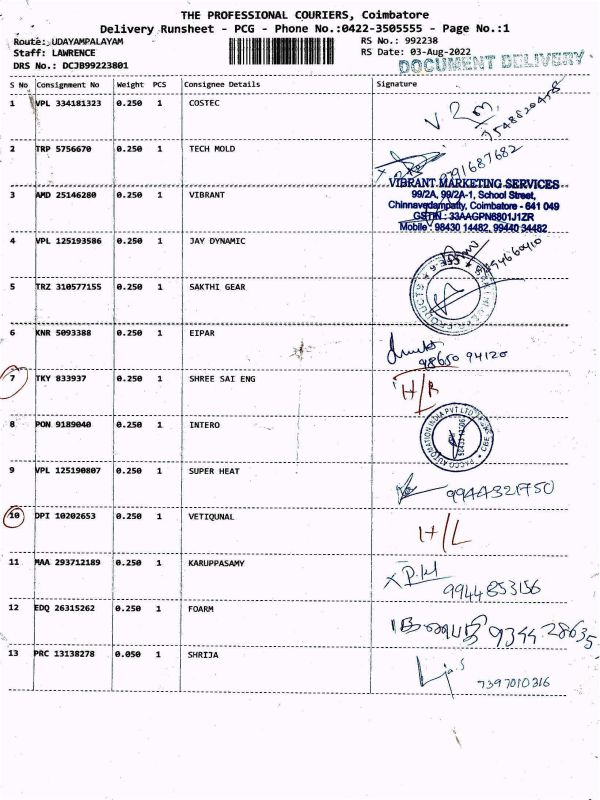 THE PROFESSIONAL COURIERS, Coimbatore
Delivery Runsheet - PCG - Phone No.:0422-3505555 - Page No.:1
Route: UDAYAMPALAYAM RS No.: 992238
Staff: LAWRENCE RS Date: 03-Aug-2022
DRS No.: DCJB99223801 DOCUMENT DELIVERY
S No Consignment No Weight PCS Consignee Details Signature
1 VPL 334181323 0.250 1 COSTEC
2 TRP 5756670 0.250 1 TECH MOLD
VIBRANT MARKETING SERVICES
3 AMD 25146280 0.250 1 VIBRANT 99/2A, 99/2A-1, School Street,
Chinnavedampatty, Coimbatore - 641 049
GSTIN : 33AAGPN6801J1ZR
Mobile : 98430 14482, 99440 34482
4 VPL 125193586 0.250 1 JAY DYNAMIC
5 TRZ 310577155 0.250 1 SAKTHI GEAR
6 KNR 5093388 0.250 1 EIPAR
98650 94120
7 TKY 833937 0.250 1 SHREE SAI ENG H/R
8 PON 9189040 0.250 1 INTERO
9 VPL 125190807 0.250 1 SUPER HEAT
9944321750
10 DPI 10202653 0.250 1 VETIQUNAL H/L
11 MAA 293712189 0.250 1 KARUPPASAMY
9944853156
12 EDQ 26315262 0.250 1 FOARM
9344 28635
13 PRC 13138278 0.050 1 SHRIJA
7397010316